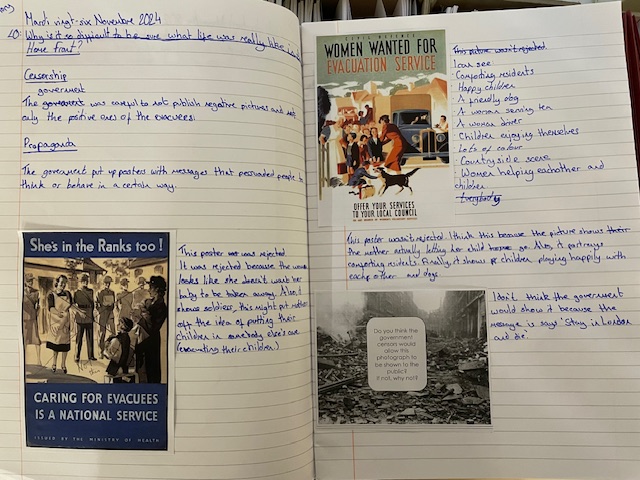 Mardi vingt-six Novembre 2024
LO: Why is it so difficult to be sure what life was really like in the
Home Front?
Censorship
government
The government was careful to not publish negative pictures and not
only the positive ones of the evacuees.
Propaganda
The government put up posters with messages that persuaded people to
think or behave in a certain way.
She's in the Ranks too!
CARING FOR EVACUEES
IS A NATIONAL SERVICE
ISSUED BY THE MINISTRY OF HEALTH
This poster was rejected
It was rejected because the woman
looks like she doesn't want her
baby to be taken away. Also, it
shows soldiers, this might put mothers
off the idea of putting their
children in somebody else's care
(evacuating their children)
CIVIL DEFENCE
WOMEN WANTED FOR
EVACUATION SERVICE
OFFER YOUR SERVICES
TO YOUR LOCAL COUNCIL
This picture wasn't rejected.
I can see:
Comforting residents
Happy children
A friendly dog
A woman serving tea
A woman driver
Children enjoying themselves
Lots of colour
Countryside scene
Women helping eachother and
children
Everybody
This poster wasn't rejected. I think this because the picture shows their
the mother actually letting her child go. Also, it portrays
comforting residents. Finally, it shows children playing happily with
each other and dogs
Do you think the
government
censor would
allow this
photograph to
be shown to the
public?
If not, why not?
I don't think the government
would show it because the
message is says "Stay in London
and die.